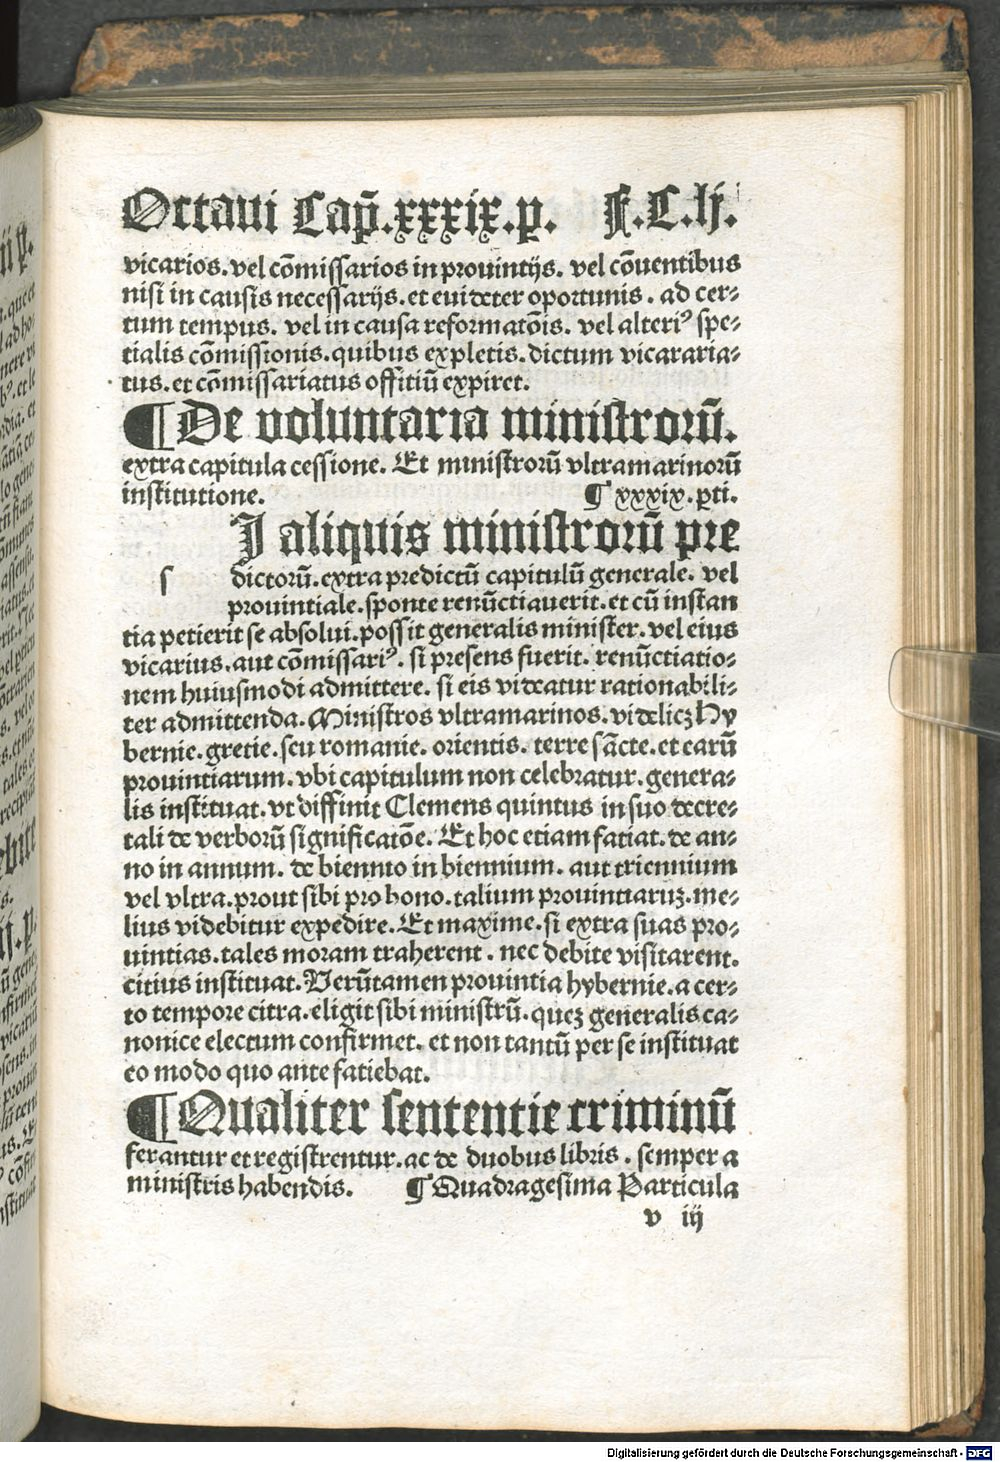 Octaui Cap̄.xxxix.p. F.C.lj.
vicarios.vel cōmissarios in prouintijs. vel cōuentibus
nisi in causis necessarijs.et euidēter oportunis. ad cer⸗
tum tempus. vel in causa reformatōis. vel alteriꝰ spe⸗
tialis cōmissionis.quibus expletis.dictum vicararia⸗
tus.et cōmissariatus offitiū expiret.
¶De voluntaria ministrorū.
extra capitula cessione. Et ministrorū vltramarinorū
institutione. ¶ xxxix.pti.
J aliquis ministrorū pre
s dictorū.extra predictū capitulū generale. vel
prouintiale.sponte renūctiauerit.et cū instan
tia petierit se absolui.possit generalis minister.vel eius
vicarius.aut cōmissariꝰ. si presens fuerit. renūctiatio⸗
nem huiusmodi admittere. si eis videatur rationabili⸗
ter admittenda.Ministros vltramarinos.videlicꝫ Hy
bernie.gretie.seu romanie. orientis. terre sācte.et earū
prouintiarum.vbi capitulum non celebratur.genera⸗
lis instituat.vt diffinit Clemens quintus in suo decre⸗
tali de verborū significatōe. Et hoc etiam fatiat.de an⸗
no in annum. de biennio in biennium. aut triennium
vel vltra.prout sibi pro bono.talium prouintiaruꝫ.me⸗
lius videbitur expedire.Et maxime.si extra suas pro⸗
uintias.tales moram traherent. nec debite visitarent.
citius instituat.Verūtamen prouintia hybernie.a cer⸗
to tempore citra.eligit sibi ministrū.queꝫ generalis ca⸗
nonice electum confirmet. et non tantū per se instituat
eo modo quo ante fatiebat.
¶Qualiter sententie criminū
ferantur et registrentur.ac de duobus libris. semper a
ministris habendis. ¶Quadragesima Particula
v iij
Digitalisierung gefördert durch die Deutsche Forschungsgemeinschaft - DFG